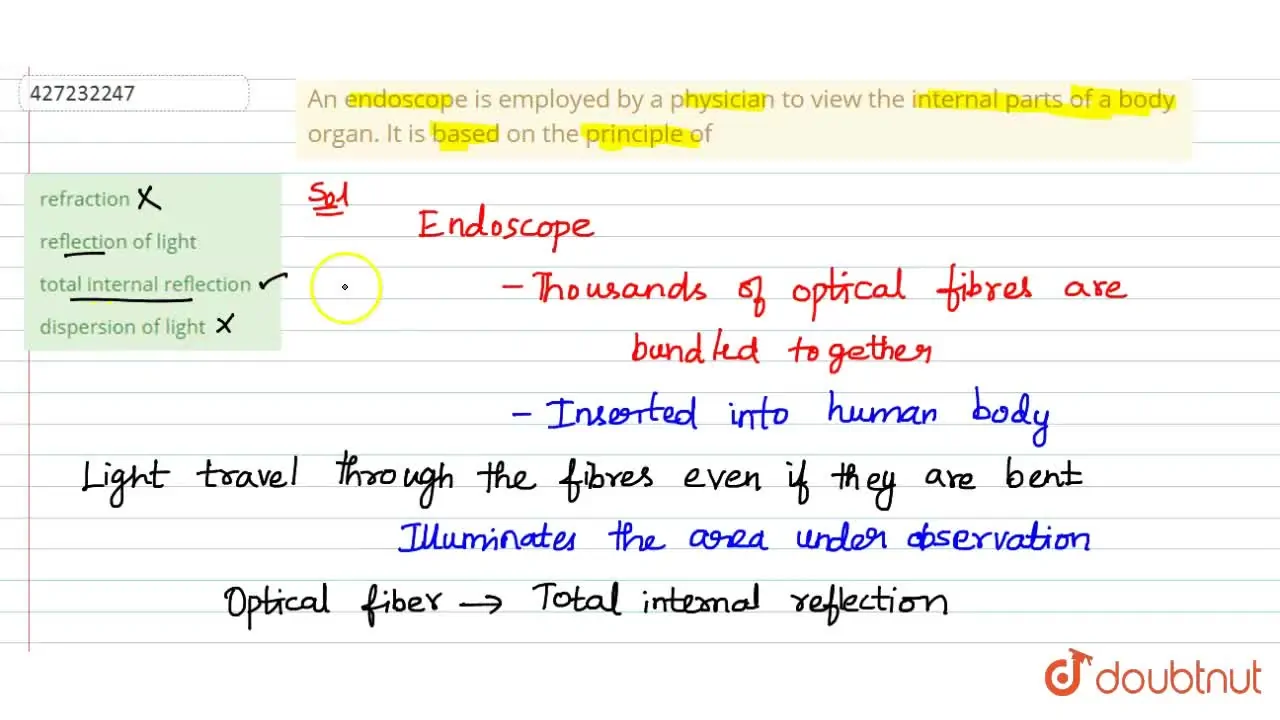 427232247
An endoscope is employed by a physician to view the internal parts of a body
organ. It is based on the principle of
refraction X
reflection of light
total internal reflection ✓
dispersion of light X
Sol
Endoscope
- Thousands of optical fibres are
bundled together
- Inserted into human body
Light travel through the fibres even if they are bent
Illuminates the area under observation
Optical fiber → Total internal reflection
doubtnut